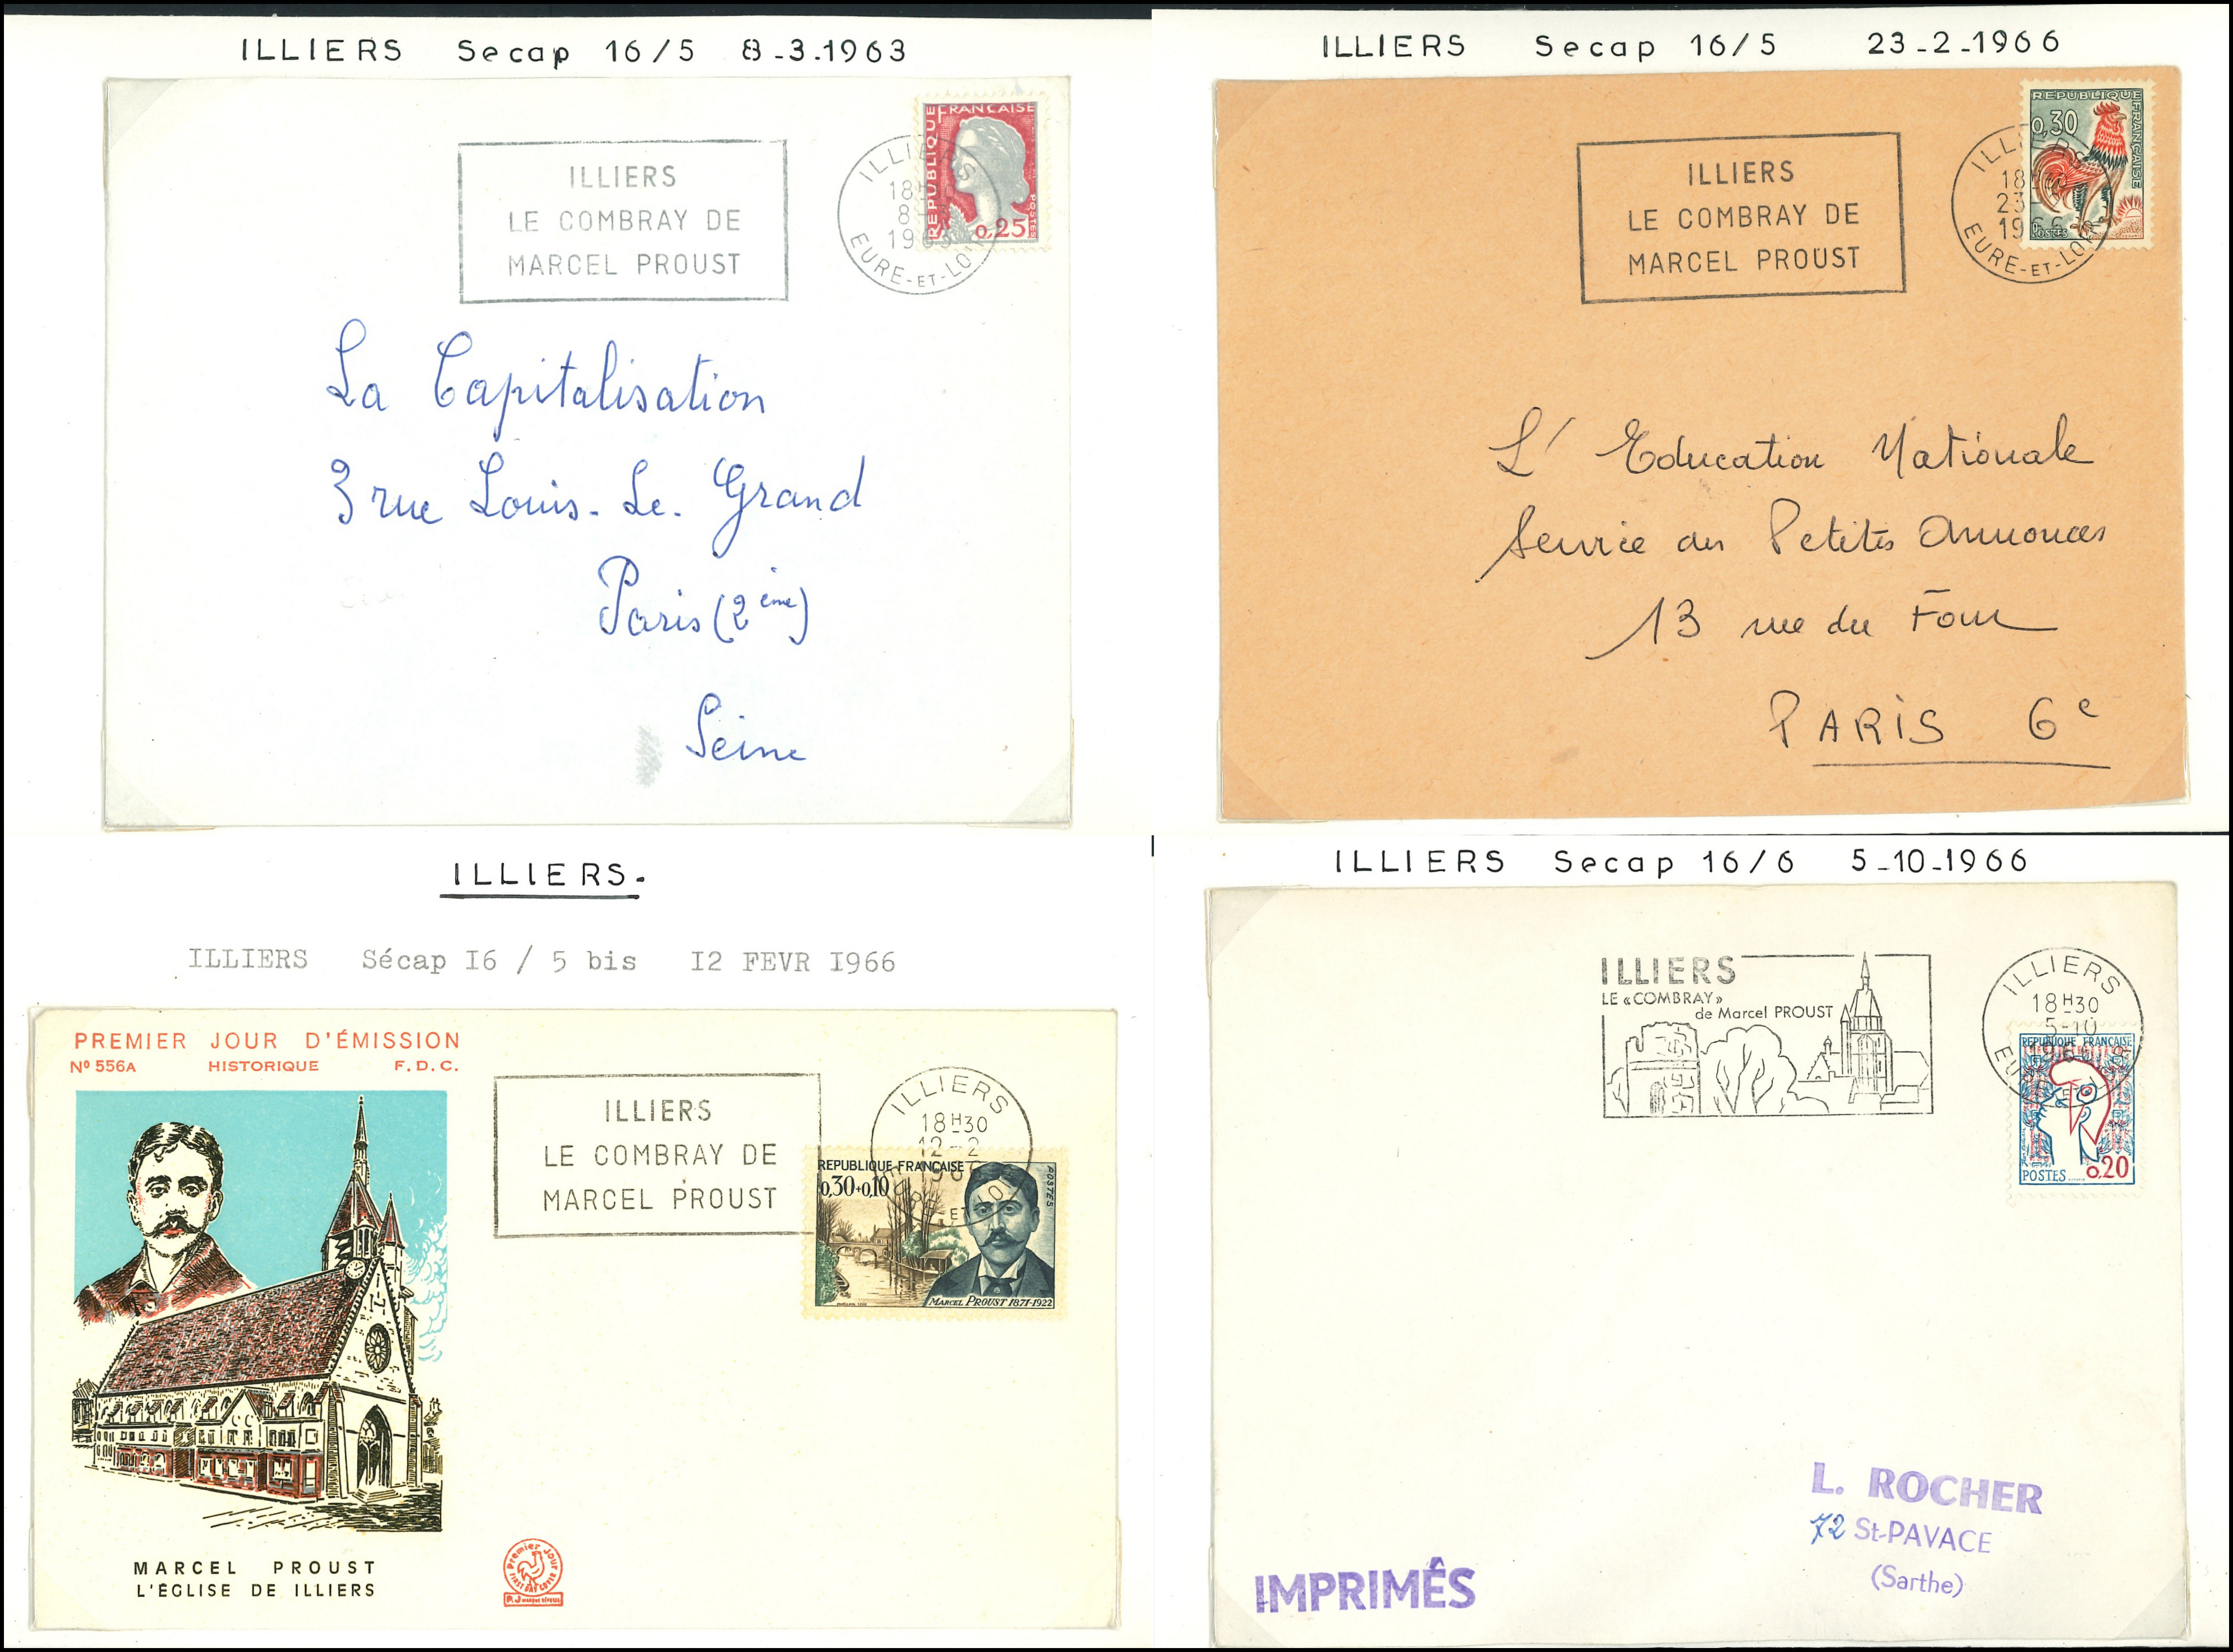 ILLIERS Secap 16/5 8-3-1963
ILLIERS
LE COMBRAY DE
MARCEL PROUST
ILLIERS
18H
8-3
1963
EURE-ET-LOIR
REPUBLIQUE FRANCAISE
POSTES
0,25
La Capitalisation
3 rue Louis-Le-Grand
Paris (2ème)
Seine
ILLIERS Secap 16/5 23-2-1966
ILLIERS
LE COMBRAY DE
MARCEL PROUST
ILLIERS
18
23
1966
EURE-ET-LOIR
REPUBLIQUE FRANÇAISE
0,30
POSTES
L'Education Nationale
Service des Petites Annonces
13 rue du Four
PARIS 6e
ILLIERS.
ILLIERS Sécap I6 / 5 bis I2 FEVR I966
PREMIER JOUR D'ÉMISSION
Nº 556A HISTORIQUE F.D.C.
ILLIERS
LE COMBRAY DE
MARCEL PROUST
ILLIERS
18H30
12-2
196
ET-LOI
REPUBLIQUE FRANÇAISE
POSTES
0,30+0,10
MARCEL PROUST 1871-1922
MARCEL PROUST
L'ÉGLISE DE ILLIERS
Premier Jour
FIRST DAY COVER
P.J MARQUE DÉPOSÉE
ILLIERS Secap 16/6 5-10-1966
ILLIERS
LE «COMBRAY»
de Marcel PROUST
ILLIERS
18H30
5-10
196
REPUBLIQUE FRANÇAISE
POSTES
0,20
L. ROCHER
72 St-PAVACE
(Sarthe)
IMPRIMÊS